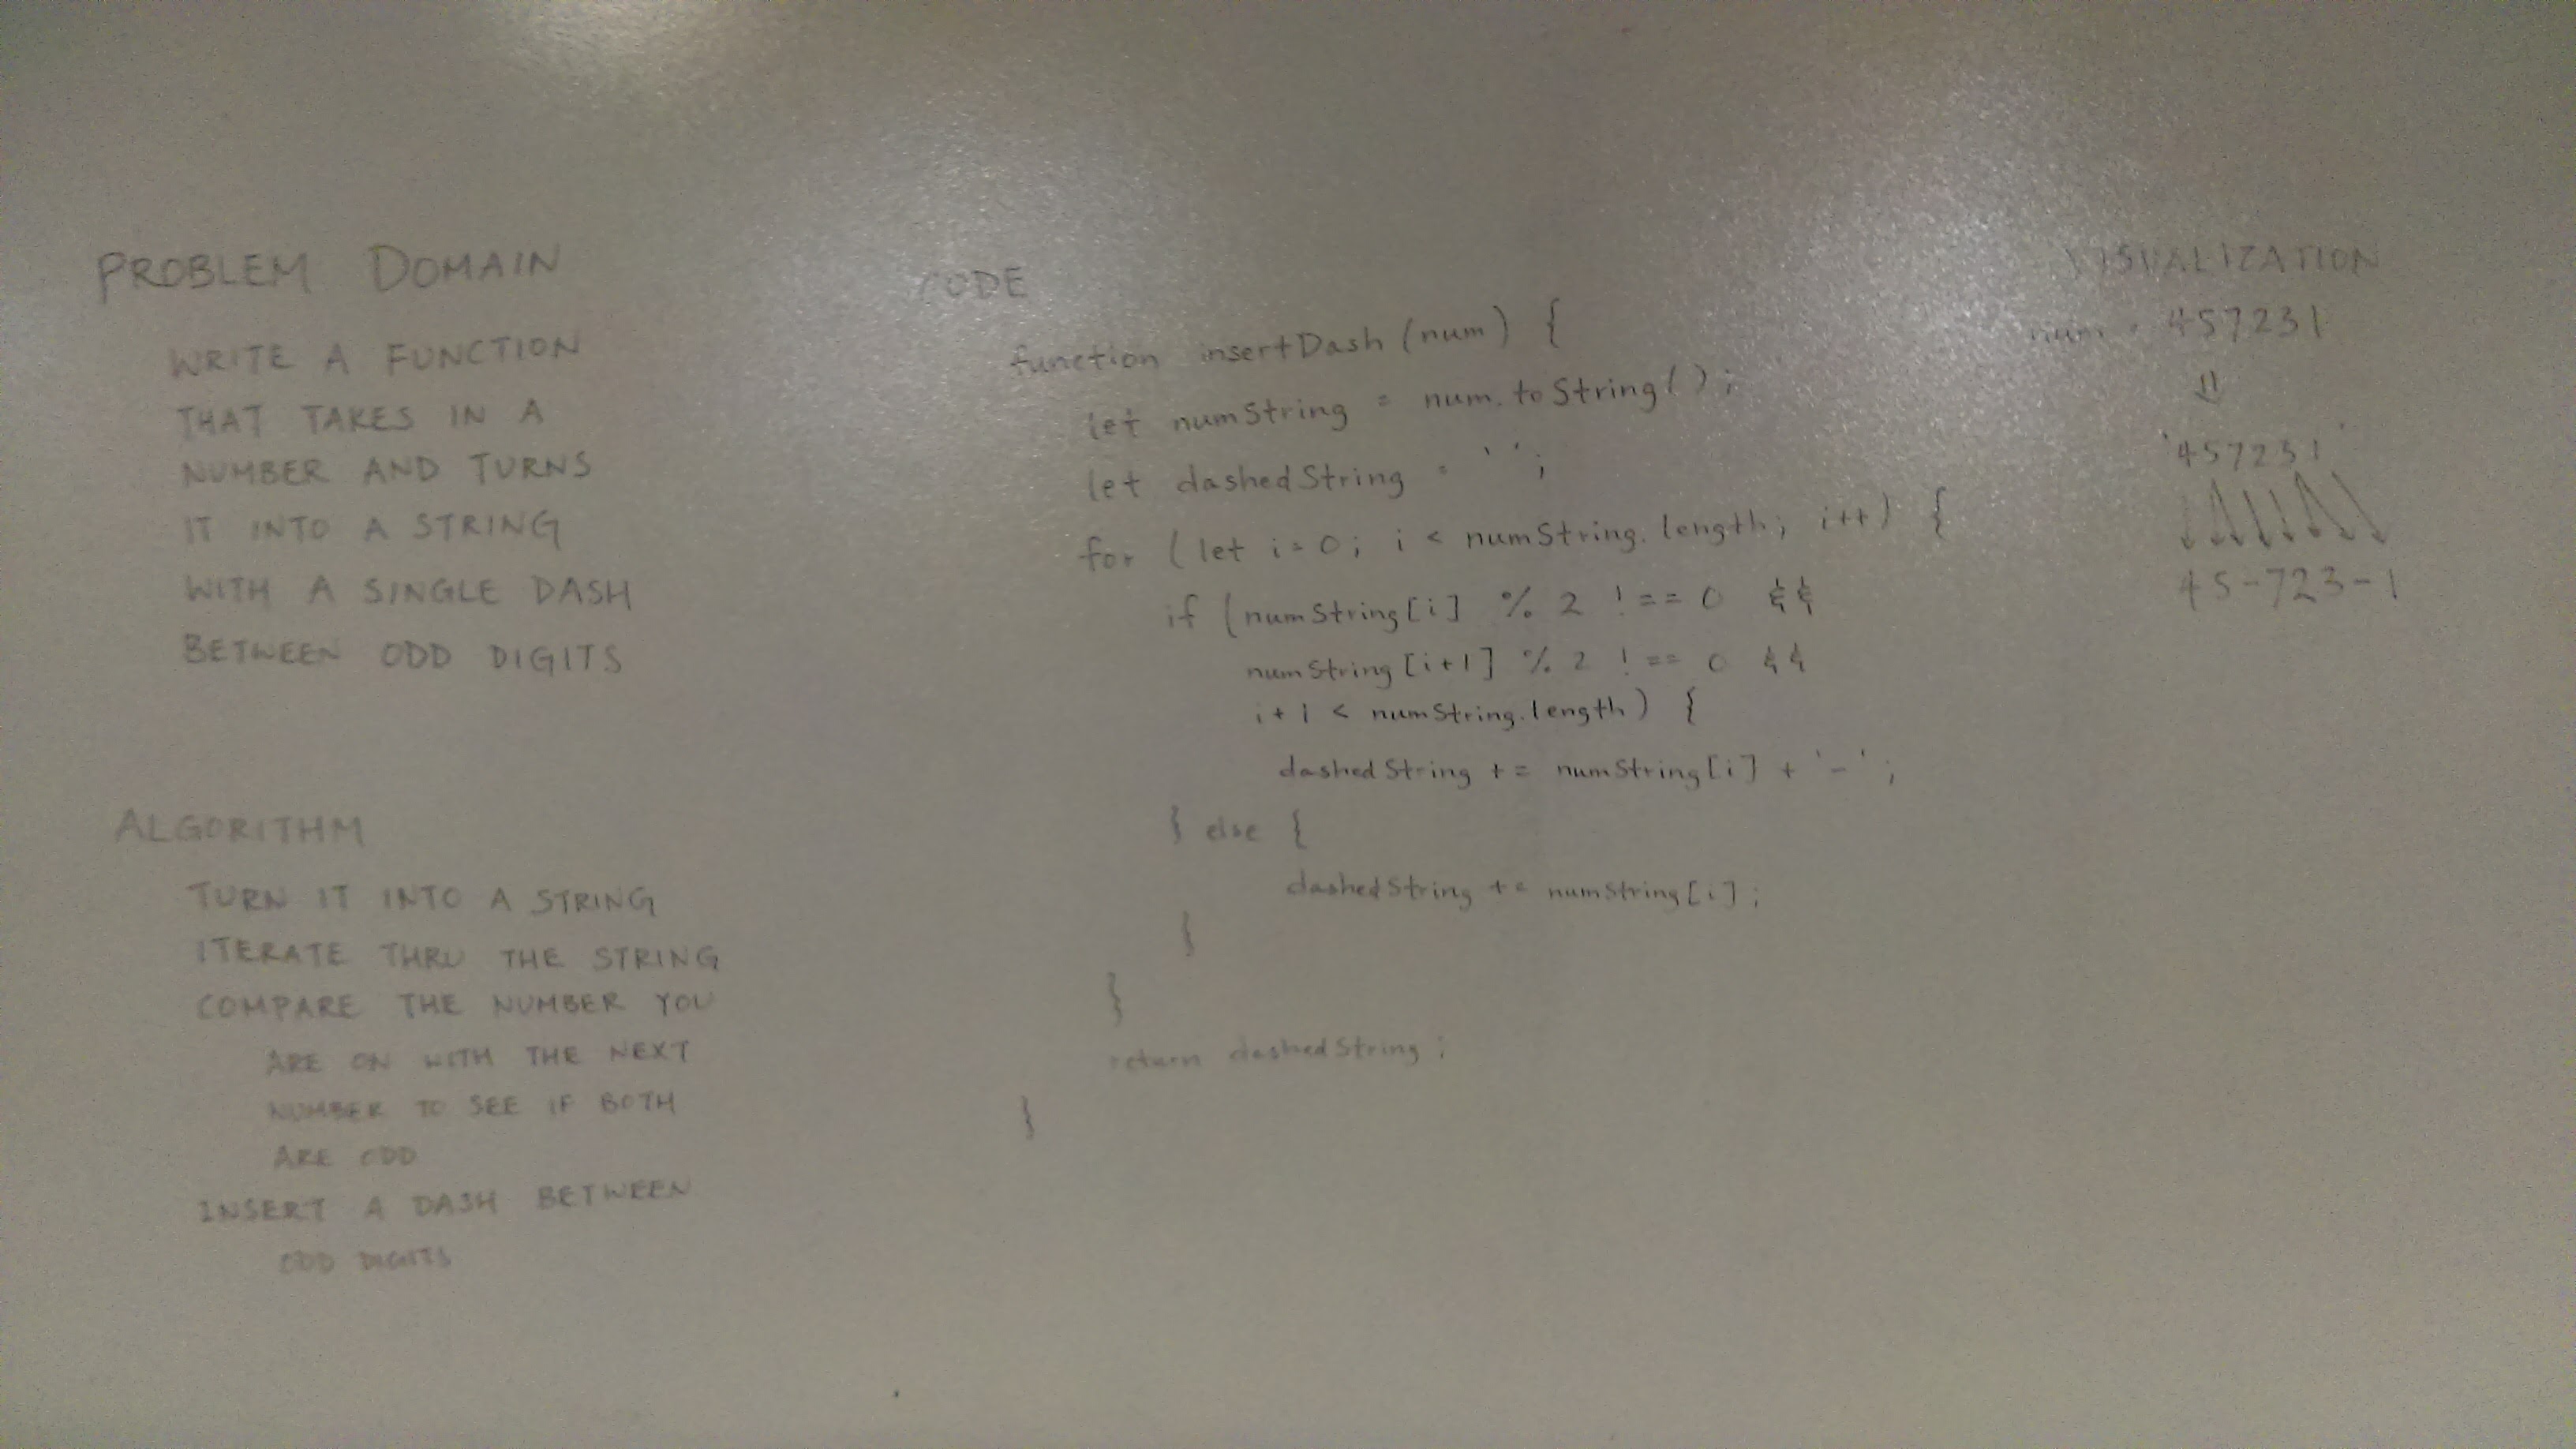 PROBLEM DOMAIN
WRITE A FUNCTION
THAT TAKES IN A
NUMBER AND TURNS
IT INTO A STRING
WITH A SINGLE DASH
BETWEEN ODD DIGITS
ALGORITHM
TURN IT INTO A STRING
ITERATE THRU THE STRING
COMPARE THE NUMBER YOU
ARE ON WITH THE NEXT
NUMBER TO SEE IF BOTH
ARE ODD
INSERT A DASH BETWEEN
ODD DIGITS
CODE
function insertDash (num) {
let numString = num.toString();
let dashedString = '';
for (let i=0; i < numString.length; i++) {
if (numString[i] % 2 !== 0 &&
numString[i+1] % 2 !== 0 &&
i+1 < numString.length) {
dashedString += numString[i] + '-';
} else {
dashedString += numString[i];
}
}
return dashedString;
}
VISUALIZATION
num = 457231
⇓
'457231'
45-723-1